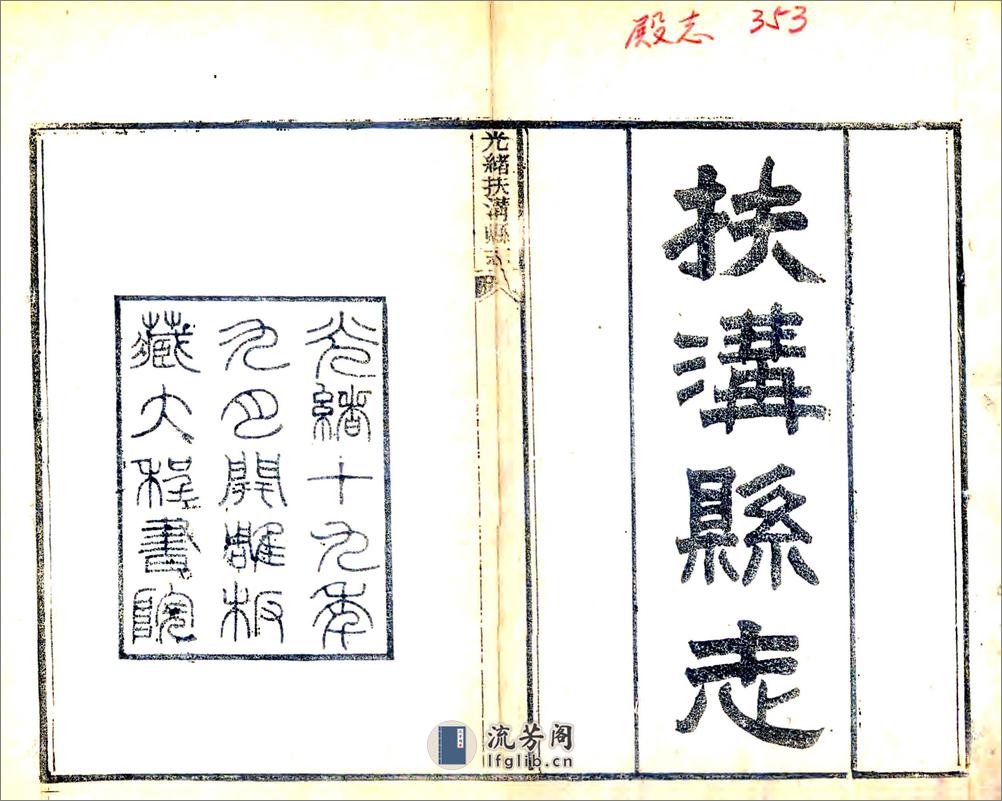 殿志 353
扶溝縣志
光緒扶溝縣志
光緒十九年
九月開雕板
藏大程書院
流芳阁
lfglib.cn